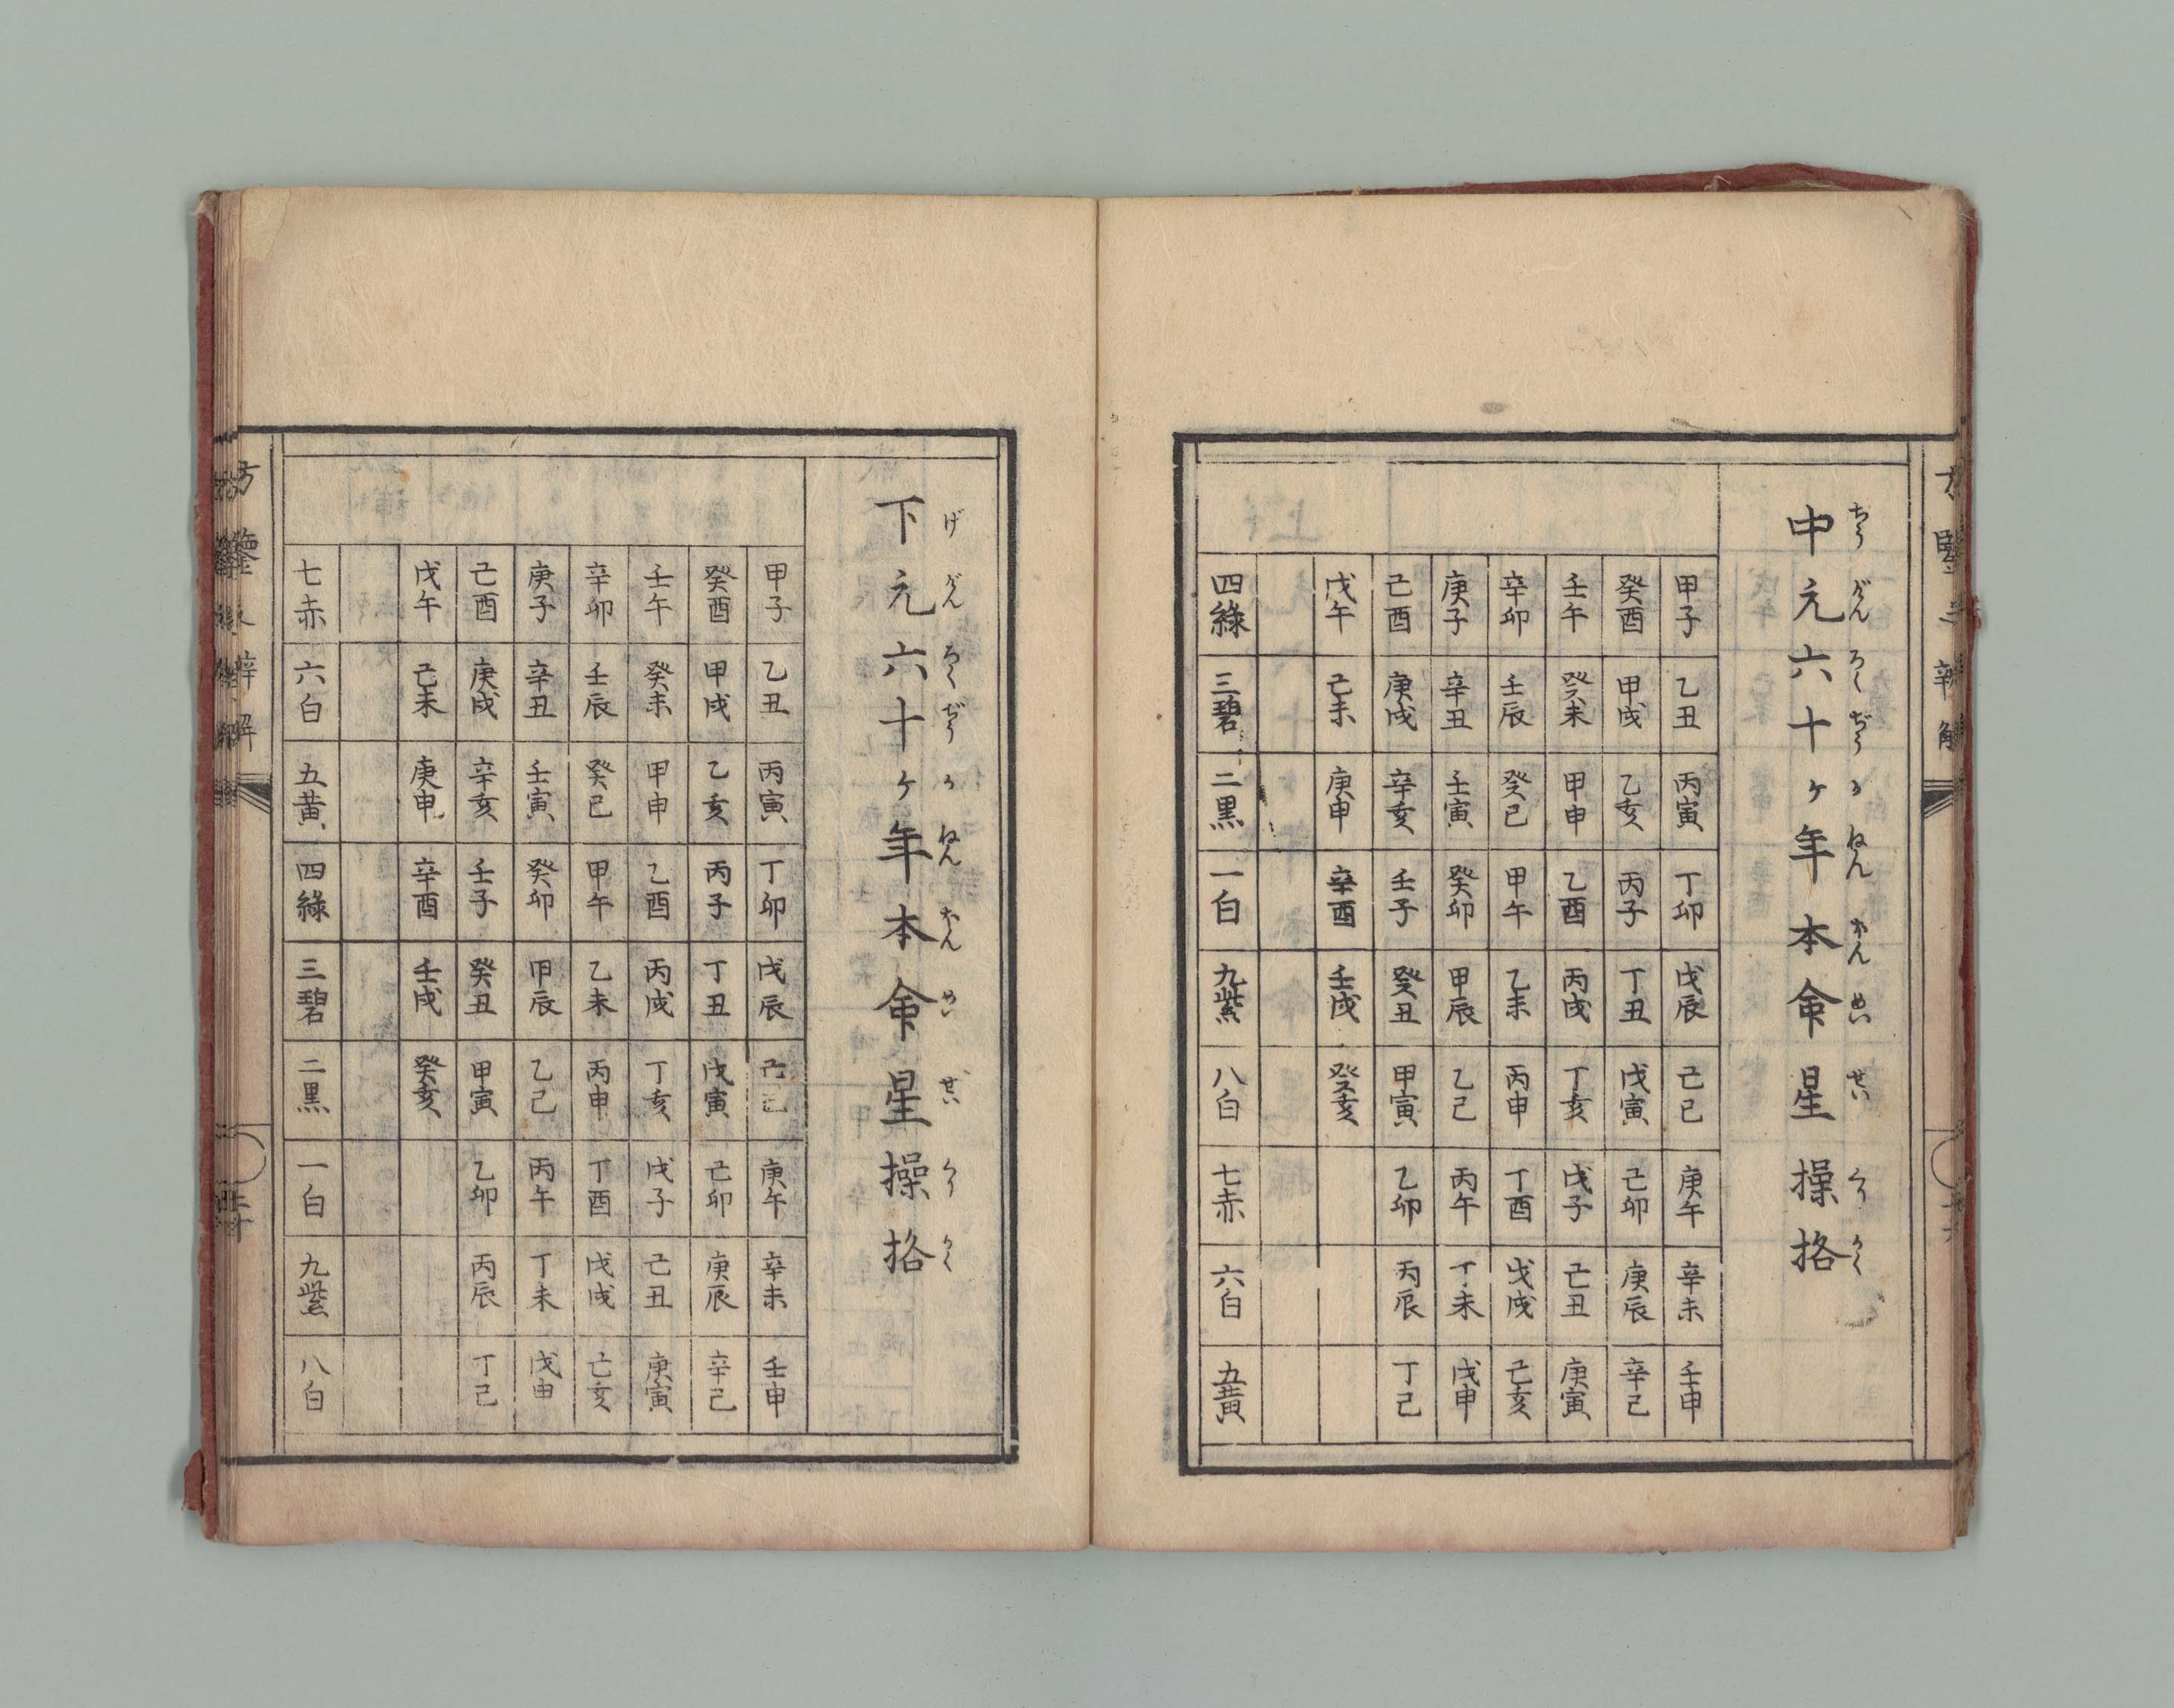 中元六十ヶ年本命星操挌
ちうげんろくぢうかねんほんめいせいくりかく
甲子 乙丑 丙寅 丁卯 戊辰 己巳 庚午 辛未 壬申
癸酉 甲戌 乙亥 丙子 丁丑 戊寅 己卯 庚辰 辛巳
壬午 癸未 甲申 乙酉 丙戌 丁亥 戊子 己丑 庚寅
辛卯 壬辰 癸巳 甲午 乙未 丙申 丁酉 戊戌 己亥
庚子 辛丑 壬寅 癸卯 甲辰 乙巳 丙午 丁未 戊申
己酉 庚戌 辛亥 壬子 癸丑 甲寅 乙卯 丙辰 丁巳
戊午 己未 庚申 辛酉 壬戌 癸亥
四綠 三碧 二黒 一白 九紫 八白 七赤 六白 五黄
下元六十ヶ年本命星操挌
げげんろくぢうかねんほんめいせいくりかく
甲子 乙丑 丙寅 丁卯 戊辰 己巳 庚午 辛未 壬申
癸酉 甲戌 乙亥 丙子 丁丑 戊寅 己卯 庚辰 辛巳
壬午 癸未 甲申 乙酉 丙戌 丁亥 戊子 己丑 庚寅
辛卯 壬辰 癸巳 甲午 乙未 丙申 丁酉 戊戌 己亥
庚子 辛丑 壬寅 癸卯 甲辰 乙巳 丙午 丁未 戊申
己酉 庚戌 辛亥 壬子 癸丑 甲寅 乙卯 丙辰 丁巳
戊午 己未 庚申 辛酉 壬戌 癸亥
七赤 六白 五黄 四綠 三碧 二黒 一白 九紫 八白